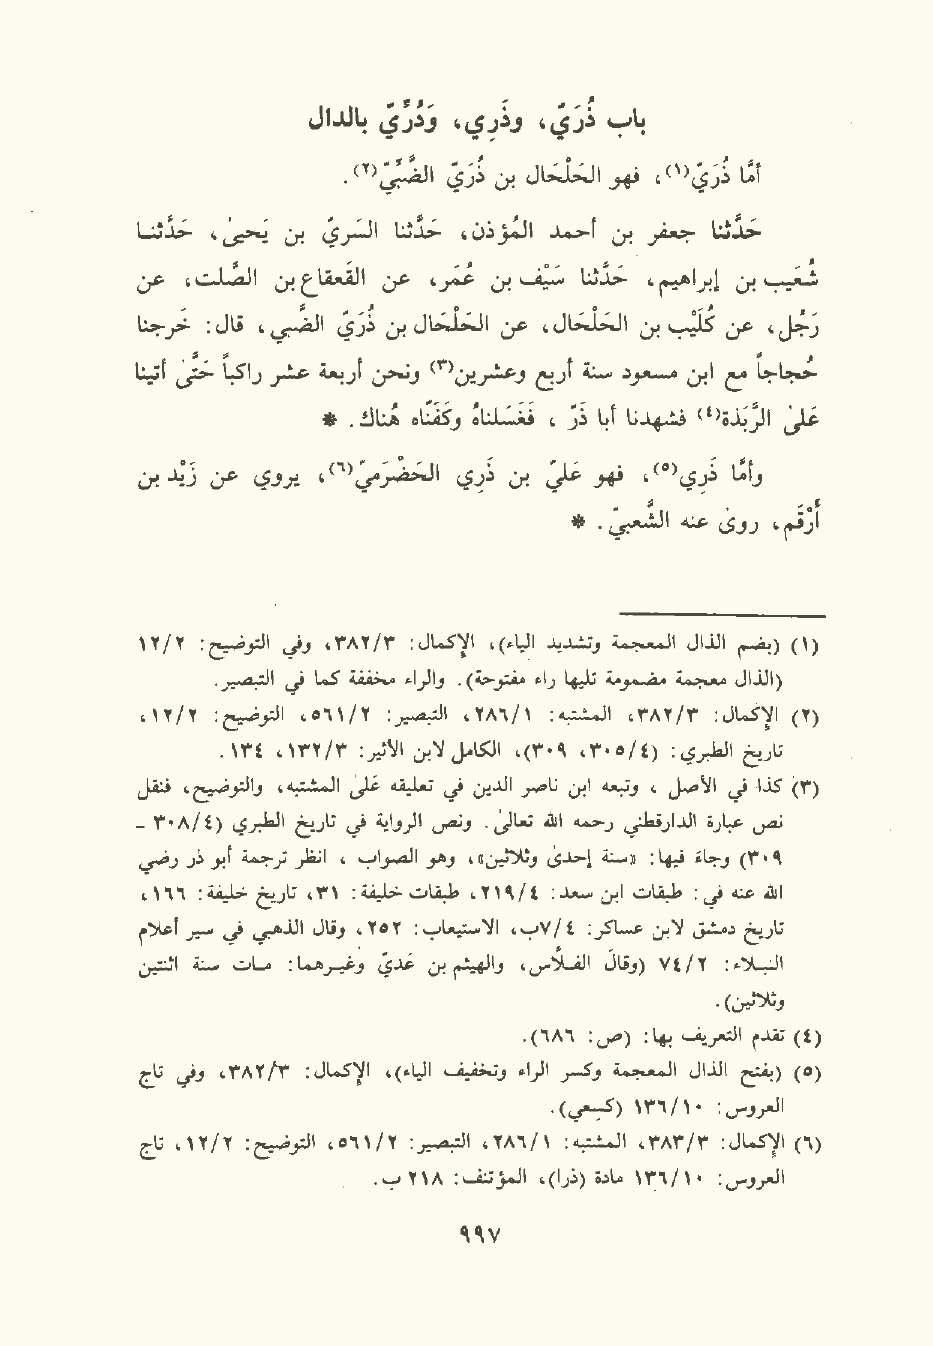 باب ذُرَيّ، وذَرِي، وَدُرِّيّ بالدال
أمَّا ذُرَيّ(١)، فهو الحَلْحَال بن ذُرَيّ الضَّبِّيّ(٢).
حَدَّثنا جعفر بن أحمد المُؤذن، حَدَّثنا السَريّ بن يَحيىٰ، حَدَّثنا
شُعَيب بن إبراهيم، حَدَّثنا سَيْف بن عُمَر، عن القَعقاع بن الصَّلت، عن
رَجُل، عن كُلَيْب بن الحَلْحَال، عن الحَلْحَال بن ذُرَيّ الضَّبي، قال: خَرجنا
حُجاجاً مع ابن مسعود سنة أربع وعشرين(٣) ونحن أربعة عشر راكباً حَتَّىٰ أتينا
عَلىٰ الرَّبَذة(٤) فشهدنا أبا ذَرّ، فغَسَلناهُ وكَفنَّاه هُناك. *
وأمَّا ذَرِي(٥)، فهو عَليّ بن ذَرِي الحَضْرَميّ(٦)، يروي عن زَيْد بن
أَرْقَم، روىٰ عنه الشَّعبيّ. *
(١) (بضم الذال المعجمة وتشديد الياء)، الإكمال: ٣٨٢/٣، وفي التوضيح: ١٢/٢
(الذال معجمة مضمومة تليها راء مفتوحة). والراء مخففة كما في التبصير.
(٢) الإكمال: ٣٨٢/٣، المشتبه: ٢٨٦/١، التبصير: ٥٦١/٢، التوضيح: ١٢/٢،
تاريخ الطبري: (٣٠٥/٤، ٣٠٩)، الكامل لابن الأثير: ١٣٢/٣، ١٣٤.
(٣) كذا في الأصل، وتبعه ابن ناصر الدين في تعليقه عَلىٰ المشتبه، والتوضيح، فنقل
نص عبارة الدارقطني رحمه الله تعالىٰ. ونص الرواية في تاريخ الطبري (٣٠٨/٤ -
٣٠٩) وجاءَ فيها: «سنة إحدىٰ وثلاثين»، وهو الصواب، انظر ترجمة أبو ذر رضي
الله عنه في: طبقات ابن سعد: ٢١٩/٤، طبقات خليفة: ٣١، تاريخ خليفة: ١٦٦،
تاريخ دمشق لابن عساكر: ٧/٤ب، الاستيعاب: ٢٥٢، وقال الذهبي في سير أعلام
النبلاء: ٧٤/٢ (وقال الفلاَّس، والهيثم بن عَديّ وغيرهما: مات سنة اثنتين
وثلاثين).
(٤) تقدم التعريف بها: (ص: ٦٨٦).
(٥) (بفتح الذال المعجمة وكسر الراء وتخفيف الياء)، الإكمال: ٣٨٢/٣، وفي تاج
العروس: ١٣٦/١٠ (كسعي).
(٦) الإكمال: ٣٨٣/٣، المشتبه: ٢٨٦/١، التبصير: ٥٦١/٢، التوضيح: ١٢/٢، تاج
العروس: ١٣٦/١٠ مادة (ذرا)، المؤتنف: ٢١٨ ب.
٩٩٧